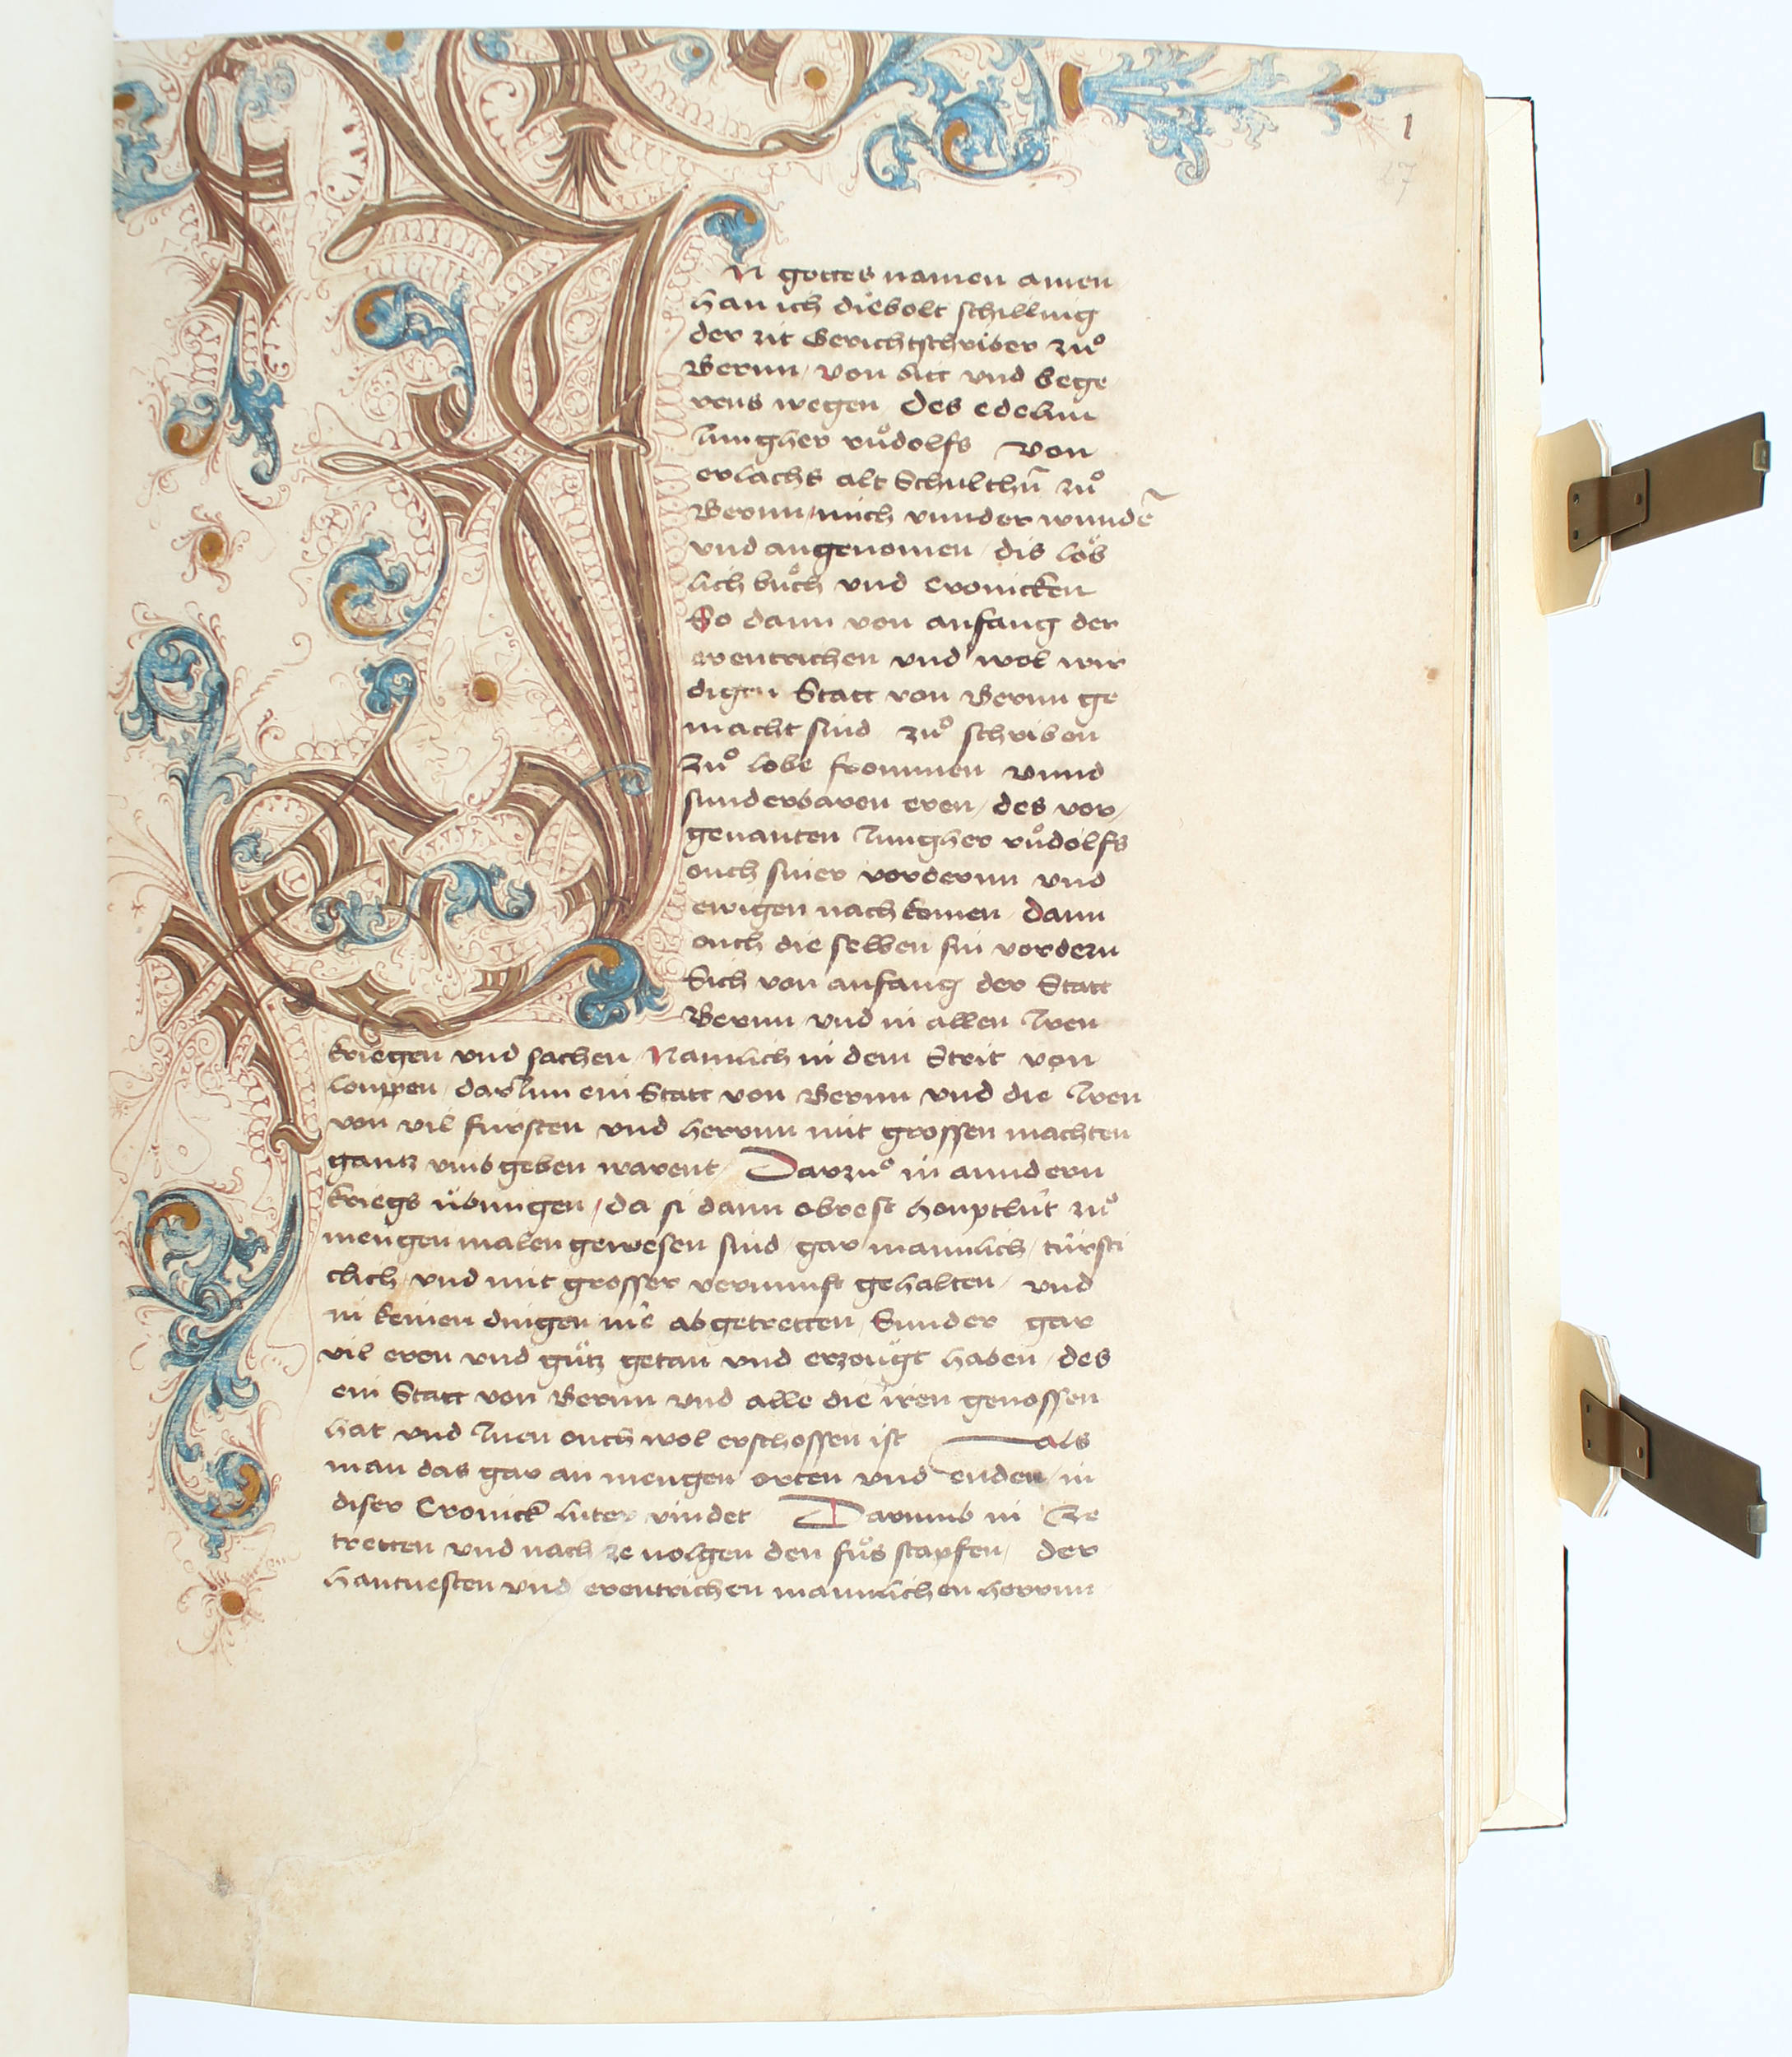 1
27
In gottes namen amen
han ich diebolt schilling
der zit Gerichtschriber zuͦ
Bernn / von bitt vnd bege
rens wegen / des edelnn
Jungher ruͦdolfs von
erlachs alt Schulthn̄ zuͦ
Bernn / mich vnnder wundē
vnd angenomen / dis loͤb
lich buͦch vnd Cronicken
So dann von anfang der
erentrichen vnd wol wir
digen Statt von Bernn ge
macht sind zuͦ schriben
Zuͦ lobe frommen vnnd
sunderbaren eren / des vor /
genanten Jungher ruͦdolfs
ouch siner vordernn vnd
ewigen nachkomen / dann
ouch die selben sin vordern
Sich von anfang der Statt
Bernn vnd in allen Iren
kriegen vnd sachen / Namlich in dem Strit von
louppen / dar Inn ein Statt von Bernn vnd die Iren
von vil fürsten vnd herrnn mit grossen machten
gantz vmbgeben warent / Darzuͦ in anndern
kriegs übungen / da si dann obrest houptlüt zuͦ
mengen malen gewesen sind / gar mannlich / türsti
clich / vnd mit grosser vernunft gehalten / vnd
in keinen dingen nie abgetretten / Sunder gar
vil eren vnd guͦtz getan vnd erzoügt haben / des
ein Statt von Bernn vnd alle die iren genossen
hat vnd Inen ouch wol erschossen ist als
man das gar an mengen orten vnd enden / in
diser Cronick luter vindet Darumb in Ze
tretten vnd nach ze uolgen den fuͦs stapfen / der
hantuesten vnd erentrichen mannlichen herrnn